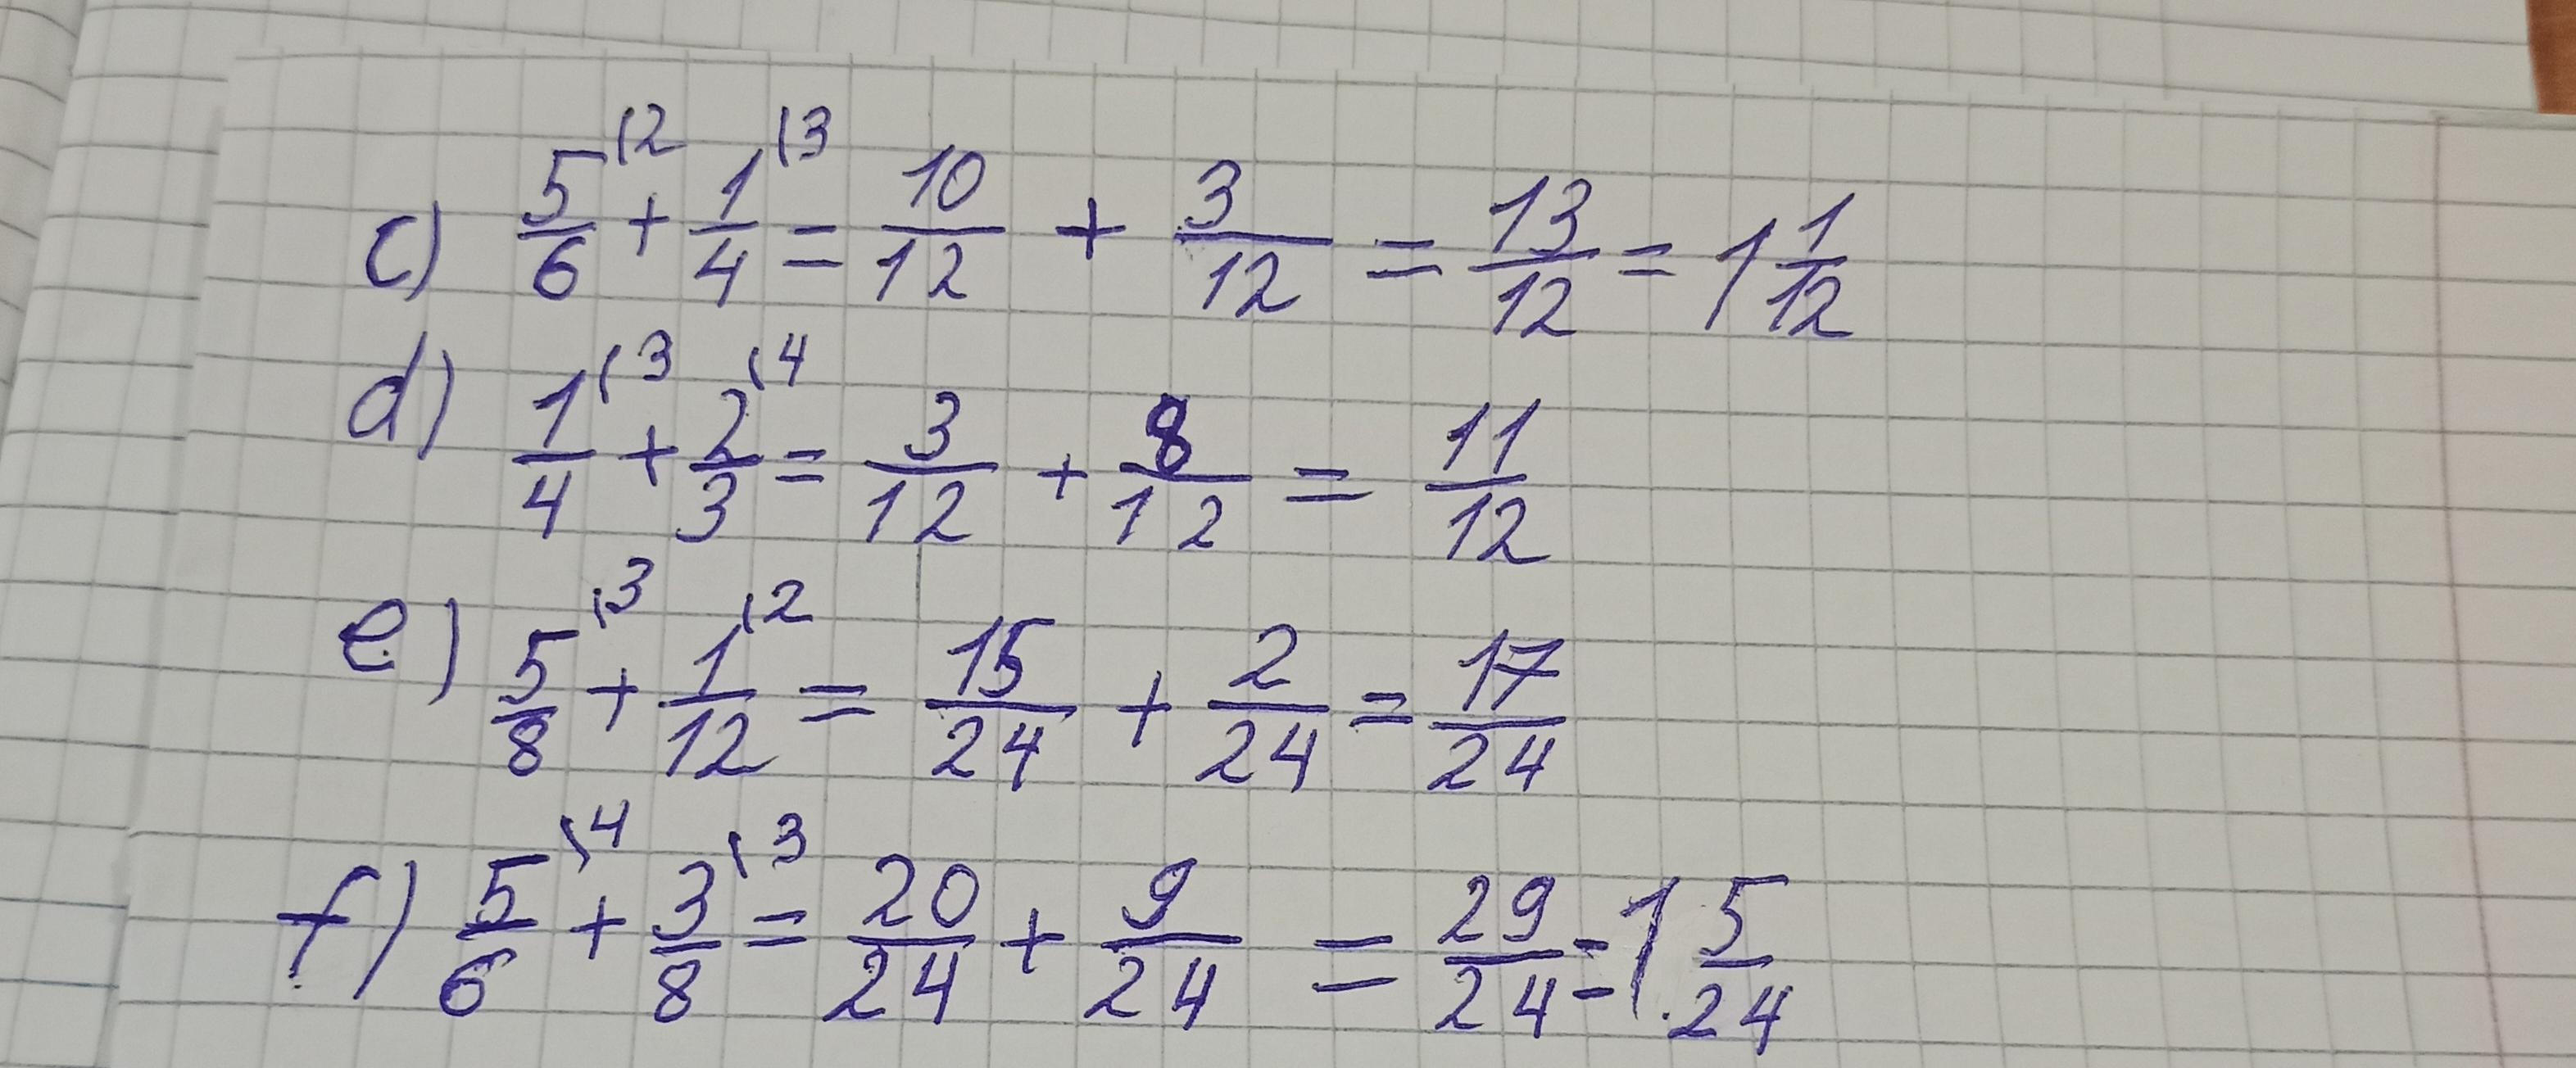 c) 5/6 (2 + 1/4 (3 = 10/12 + 3/12 = 13/12 = 1 1/12
d) 1/4 (3 + 2/3 (4 = 3/12 + 8/12 = 11/12
e) 5/8 (3 + 1/12 (2 = 15/24 + 2/24 = 17/24
f) 5/6 (4 + 3/8 (3 = 20/24 + 9/24 = 29/24 = 1 5/24